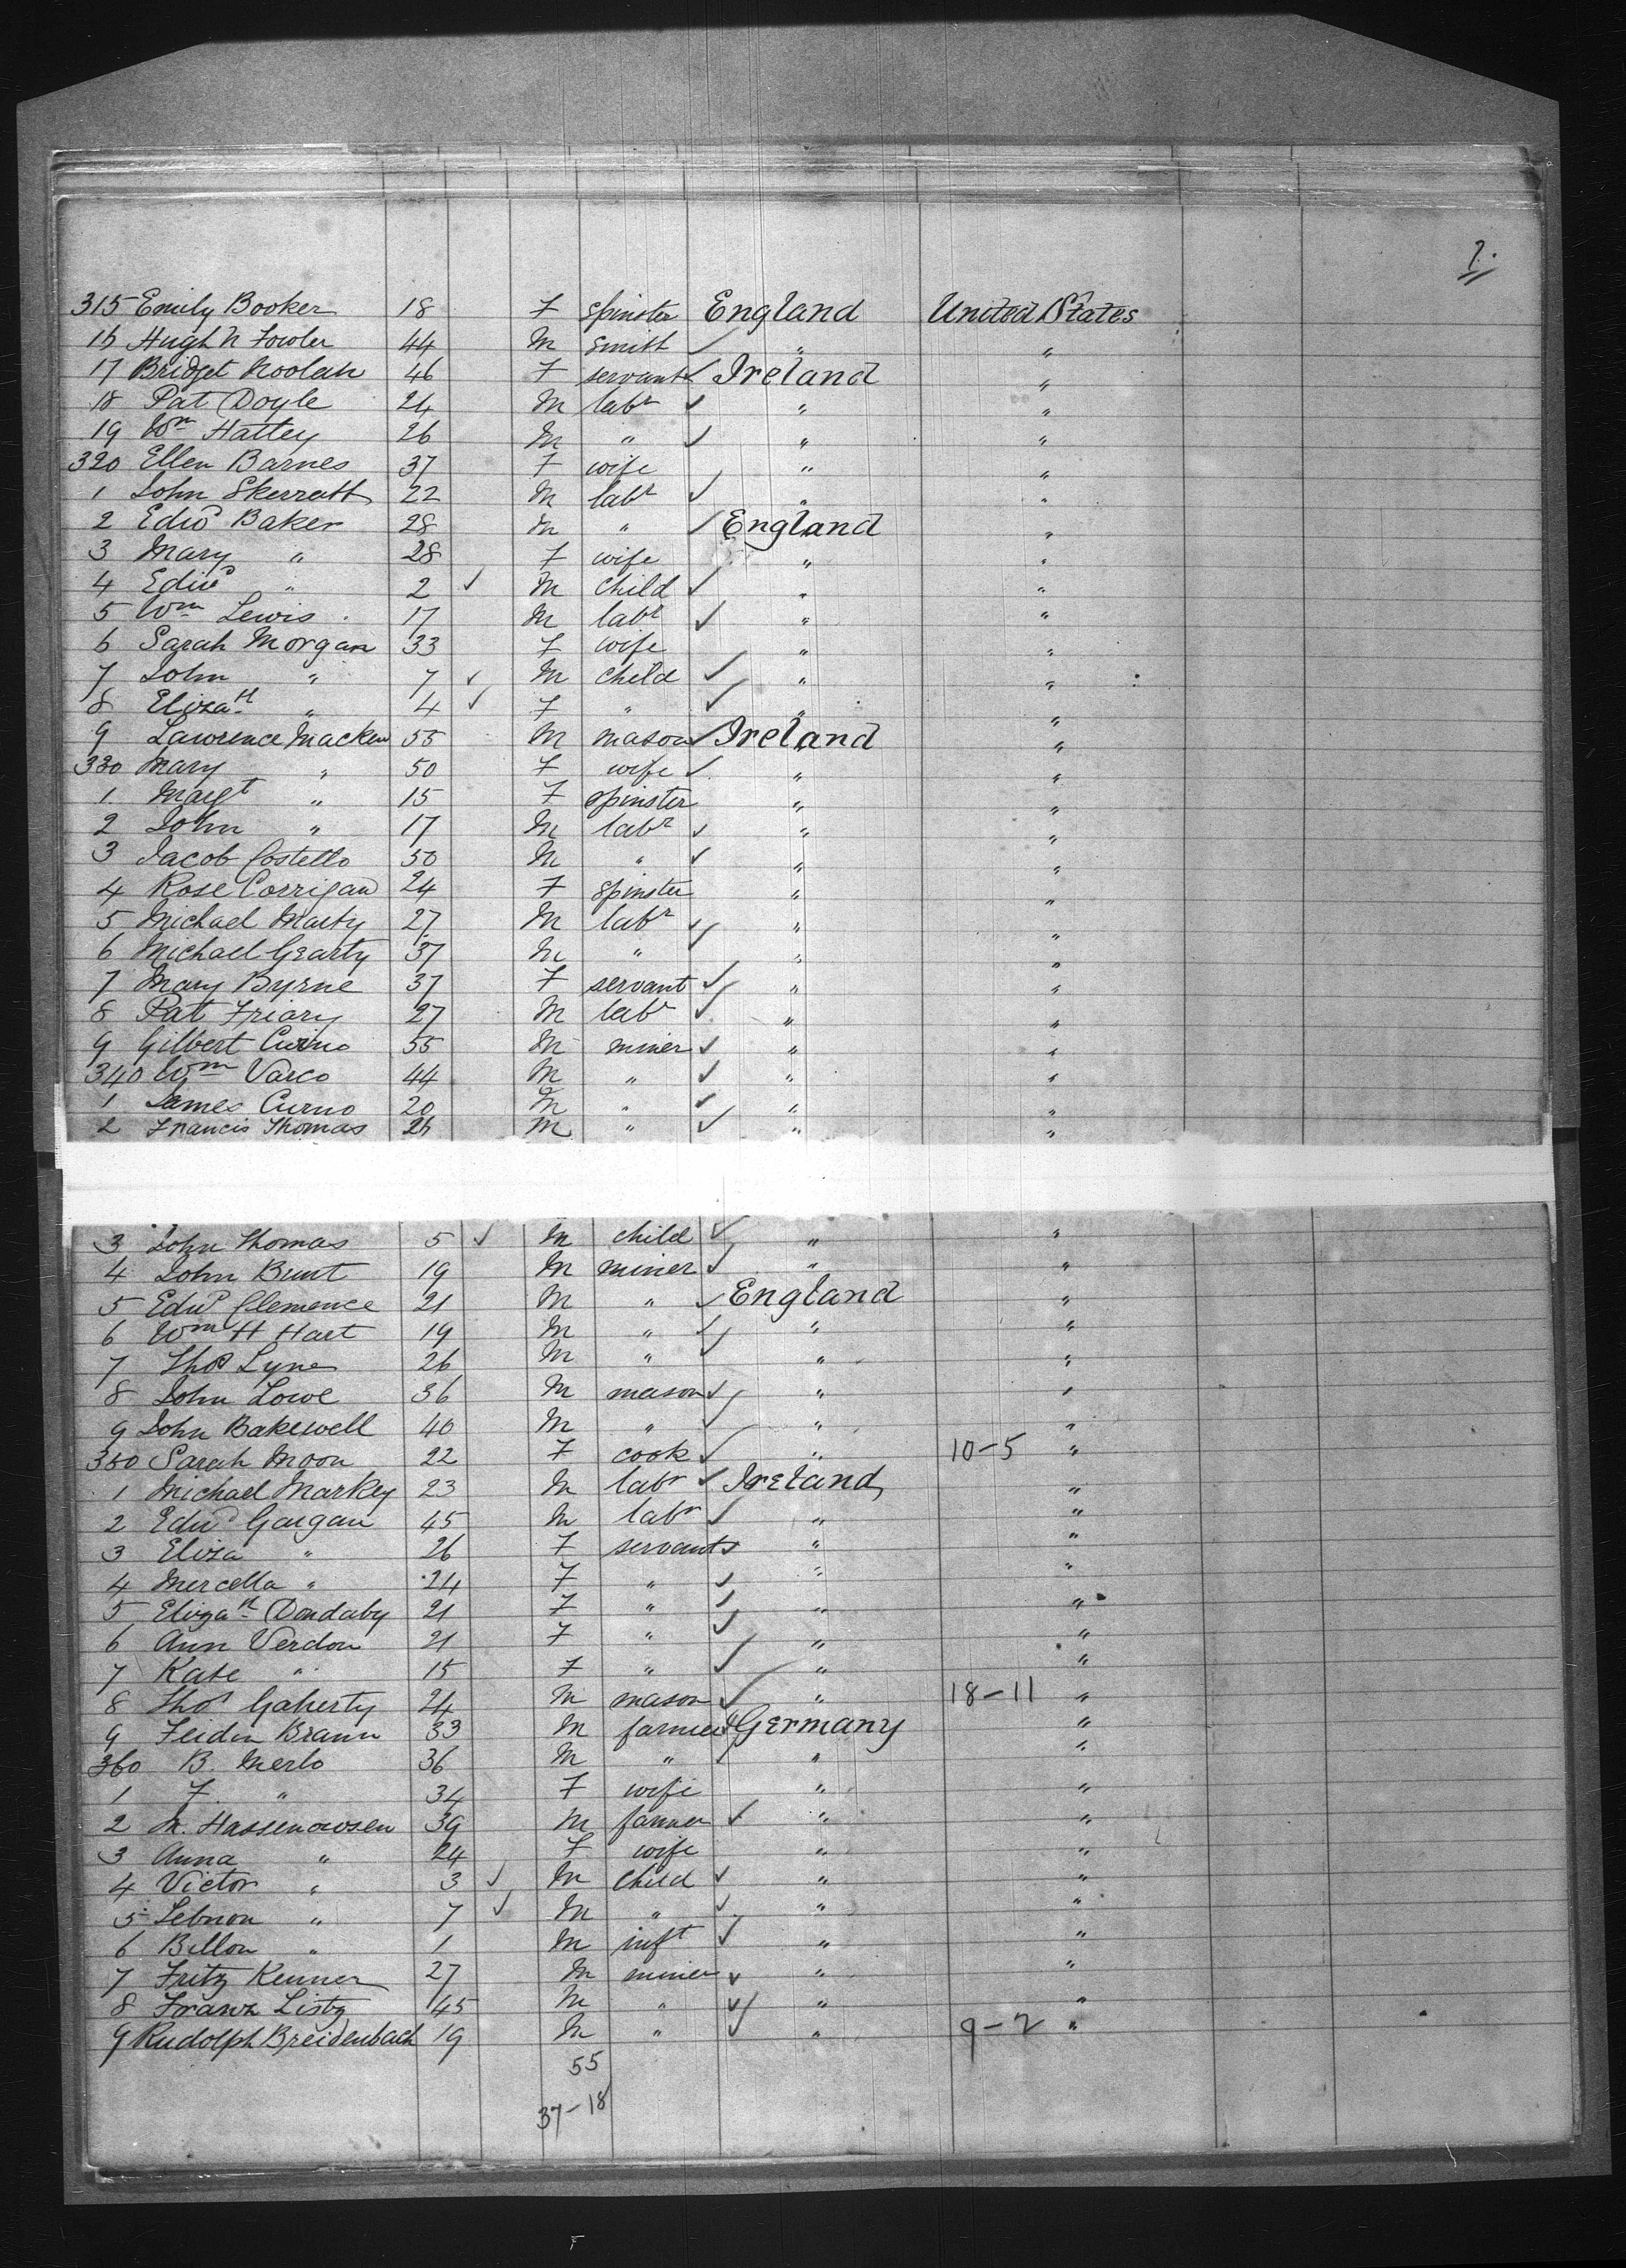 7.
315 Emily Booker 18 F Spinster England United States
16 Hugh N Fowler 44 M Smith ✓ " "
17 Bridget Noolan 46 F servant ✓ Ireland "
18 Pat Doyle 24 M labr ✓ " "
19 Wm Hattey 26 M " ✓ " "
320 Ellen Barnes 37 F wife " "
1 John Skerratt 22 M labr ✓ " "
2 Edwd Baker 28 M " ✓ England "
3 Mary " 28 F wife " "
4 Edwd " 2 ✓ M Child ✓ " "
5 Wm Lewis 17 M labr ✓ " "
6 Sarah Morgan 33 F wife " "
7 John " 7 ✓ M Child ✓ " "
8 Elizath " 4 ✓ F " ✓ " "
9 Lawrence Macken 55 M mason ✓ Ireland "
330 Mary " 50 F wife ✓ " "
1 Margt " 15 F Spinster " "
2 John " 17 M labr ✓ " "
3 Jacob Costello 50 M " ✓ " "
4 Rose Corrigan 24 F Spinster " "
5 Michael 27 M labr ✓ " "
6 Michael Gearty 37 M " ✓ " "
7 Mary Byrne 37 F servant ✓ " "
8 Pat Friary 27 M labr ✓ " "
9 Gilbert Curno 55 M miner ✓ " "
340 Wm Varco 44 M " ✓ " "
1 James Curno 20 M " ✓ " "
2 Francis Thomas 26 M " ✓ " "
3 John Thomas 5 ✓ M child ✓ " "
4 John Bunt 19 M miner ✓ " "
5 Edwd Clemence 21 M " ✓ England "
6 Wm H Hart 19 M " ✓ " "
7 Thos Lyne 26 M " ✓ " "
8 John Lowe 36 M mason ✓ " "
9 John Bakewell 40 M " ✓ " "
350 Sarah Moon 22 F cook ✓ " 10-5 "
1 Michael Markey 23 M labr ✓ Ireland "
2 Edwd Gargan 45 M labr ✓ " "
3 Eliza " 26 F servant ✓ " "
4 Mercella " 24 F " ✓ " "
5 Elizath Dondaby 21 F " ✓ " "
6 Ann Verdon 21 F " ✓ " "
7 Kate " 15 F " ✓ " "
8 Thos Gaherty 24 M mason ✓ " 18-11 "
9 Braun 33 M farmer ✓ Germany "
360 B. Merlo 36 M " ✓ " "
1 F. " 34 F wife " "
2 M. Hassenowsen 39 M farmer ✓ " "
3 Anna " 24 F wife " "
4 Victor " 3 ✓ M Child ✓ " "
5 Lebnon " 7 ✓ M " ✓ " "
6 Billon " 1 M inft ✓ " "
7 Fritz Kenner 27 M miner ✓ " "
8 Franz Listz 45 M " ✓ " "
9 Rudolph Breidenbach 19 M " ✓ " 9-2 "
55
37-18